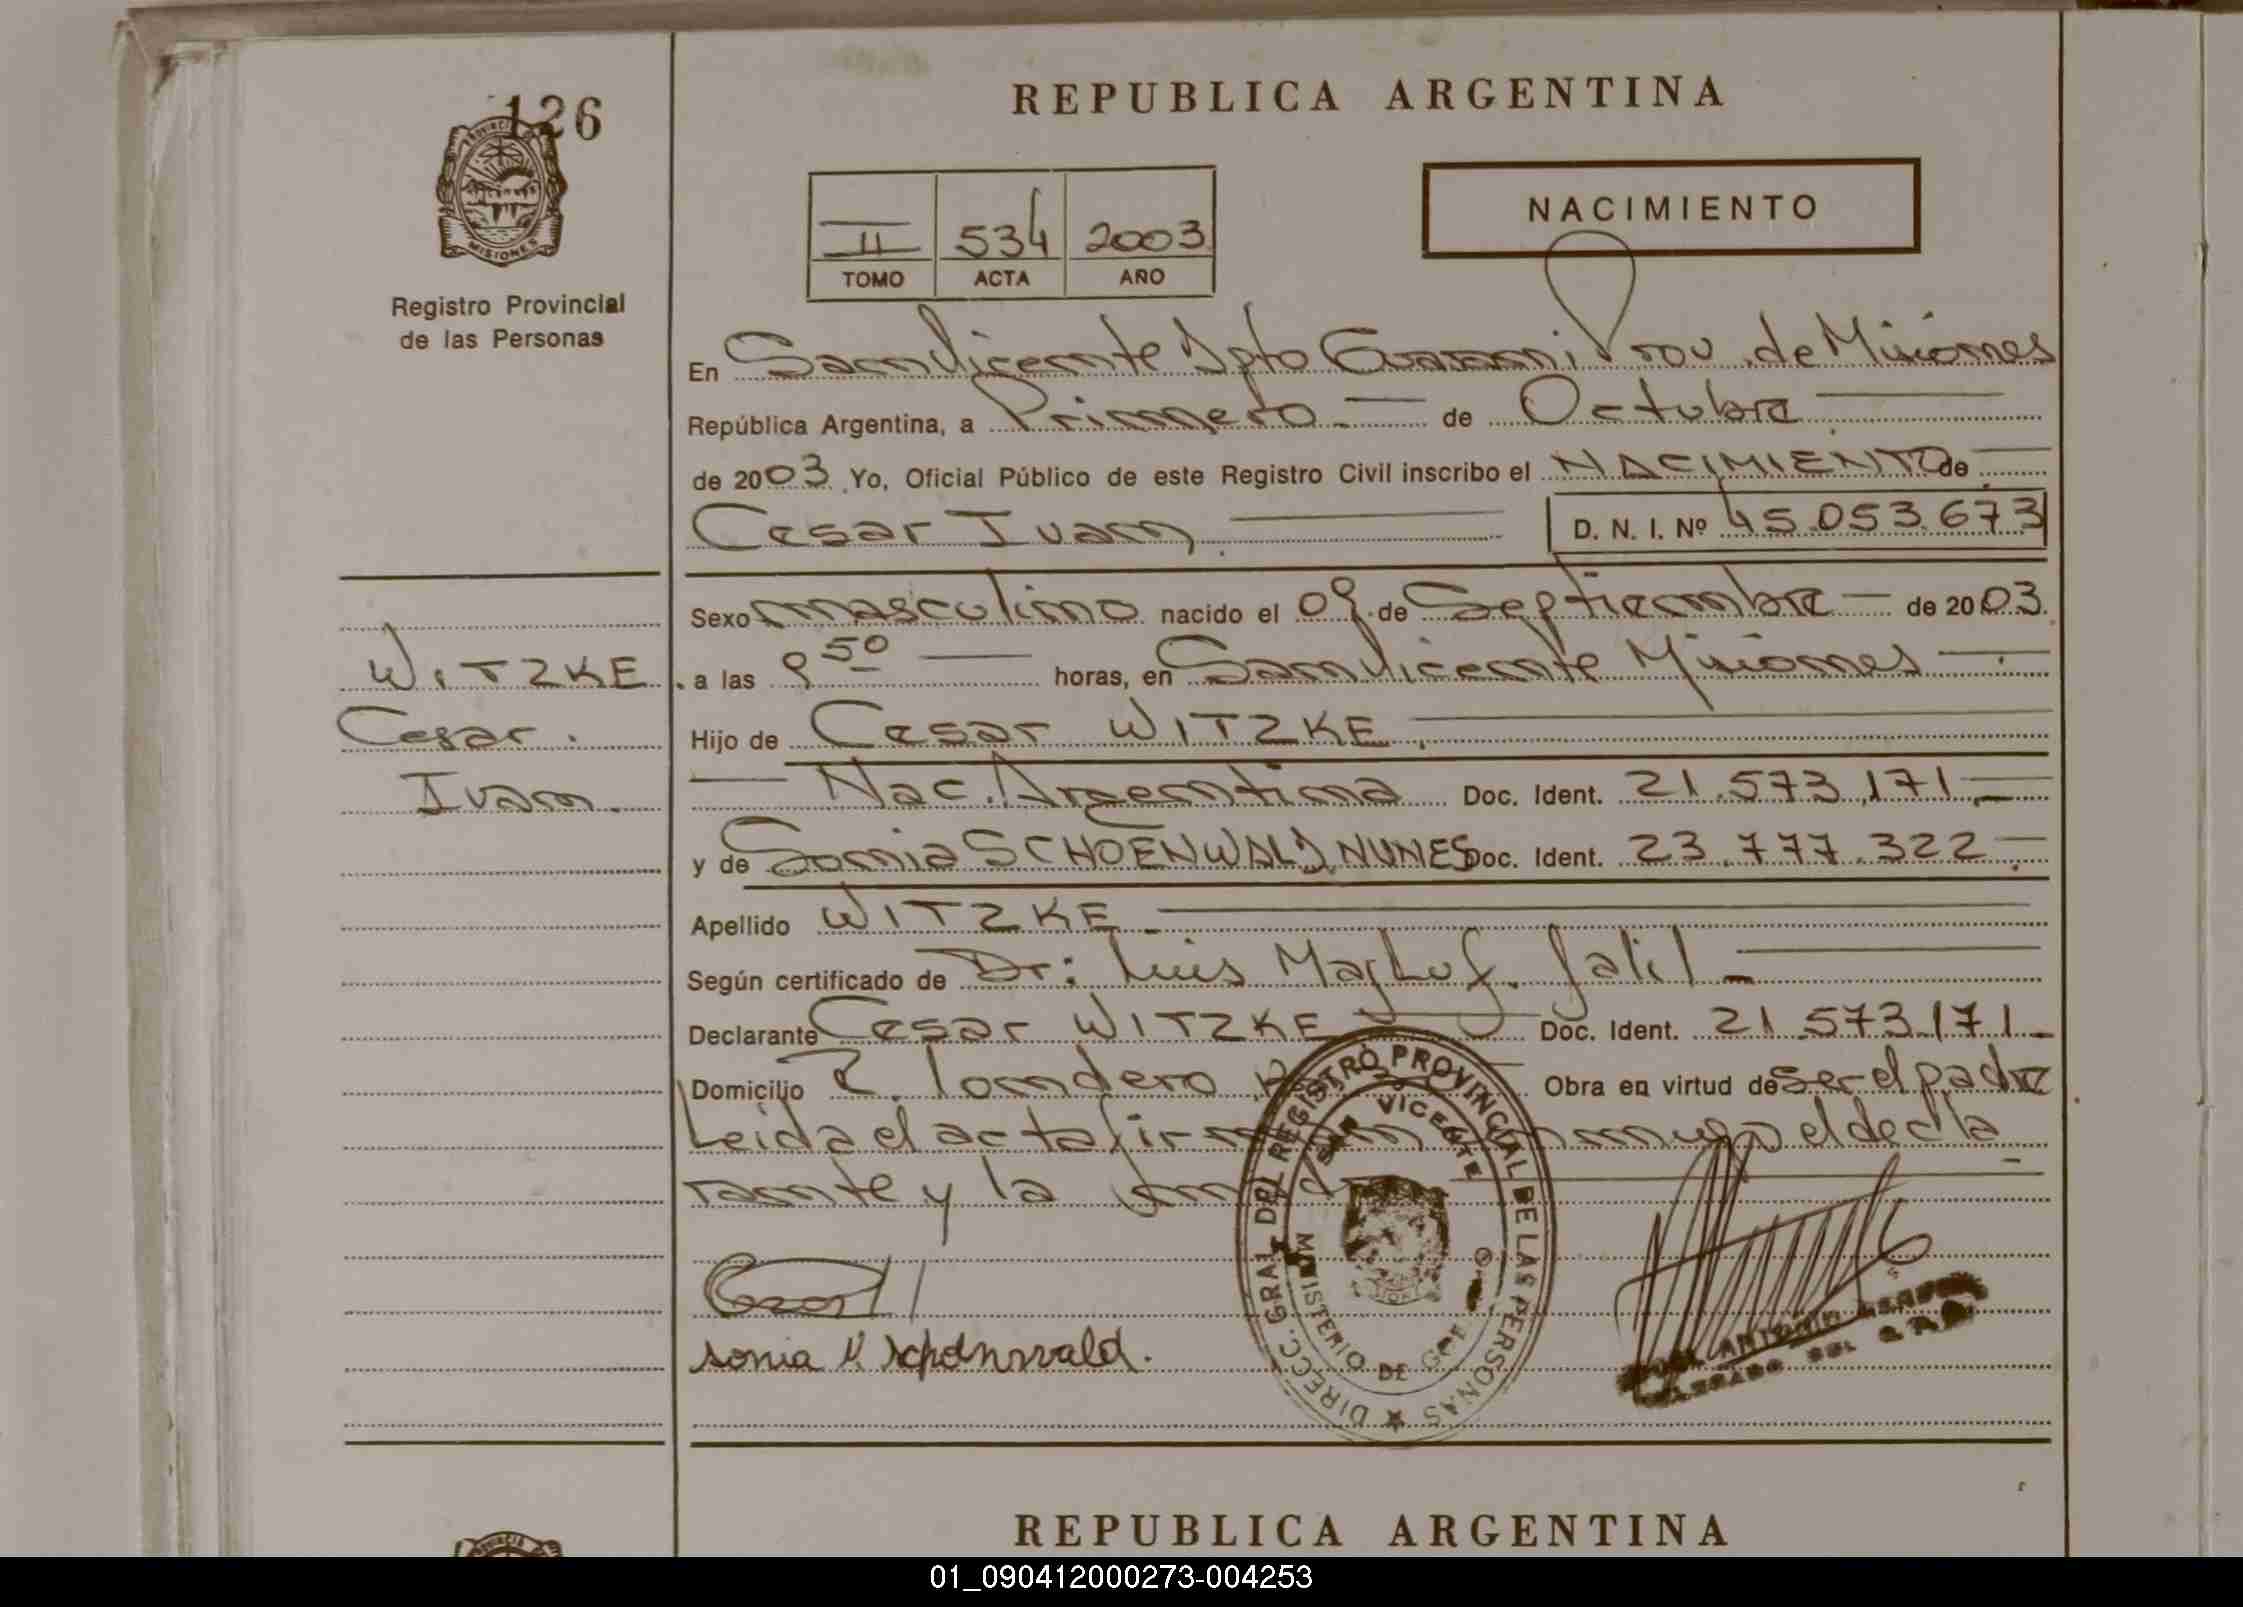 126
PROVINCIA DE
MISIONES
Registro Provincial
de las Personas
REPUBLICA ARGENTINA
NACIMIENTO
II 534 2003
TOMO ACTA AÑO
En San Vicente Dpto Guarani Prov. de Misiones
República Argentina, a Primero de Octubre
de 2003 Yo, Oficial Público de este Registro Civil inscribo el NACIMIENTO de
Cesar Ivan D. N. I. Nº 45.053.673
Sexo masculino nacido el 09 de Septiembre de 2003.
WITZKE
Cesar
Ivan.
a las 9 50 horas, en San Vicente Misiones
Hijo de Cesar WITZKE
Nac. Argentina Doc. Ident. 21.573.171
y de Sonia SCHOENWALD NUNES Doc. Ident. 23.777.322
Apellido WITZKE
Según certificado de Dr: Luis Jalil
Declarante Cesar WITZKE Doc. Ident. 21.573.171
Domicilio londero Obra en virtud de ser el padre
Leida el acta firman conmigo el decla
rante y la
DIRECC. GRAL. DEL REGISTRO PROVINCIAL DE LAS PERSONAS
SAN VICENTE
MINISTERIO DE GOB
sonia N schonwald.
ANTONIO
DELEGADO DEL
REPUBLICA ARGENTINA
01_090412000273-004253